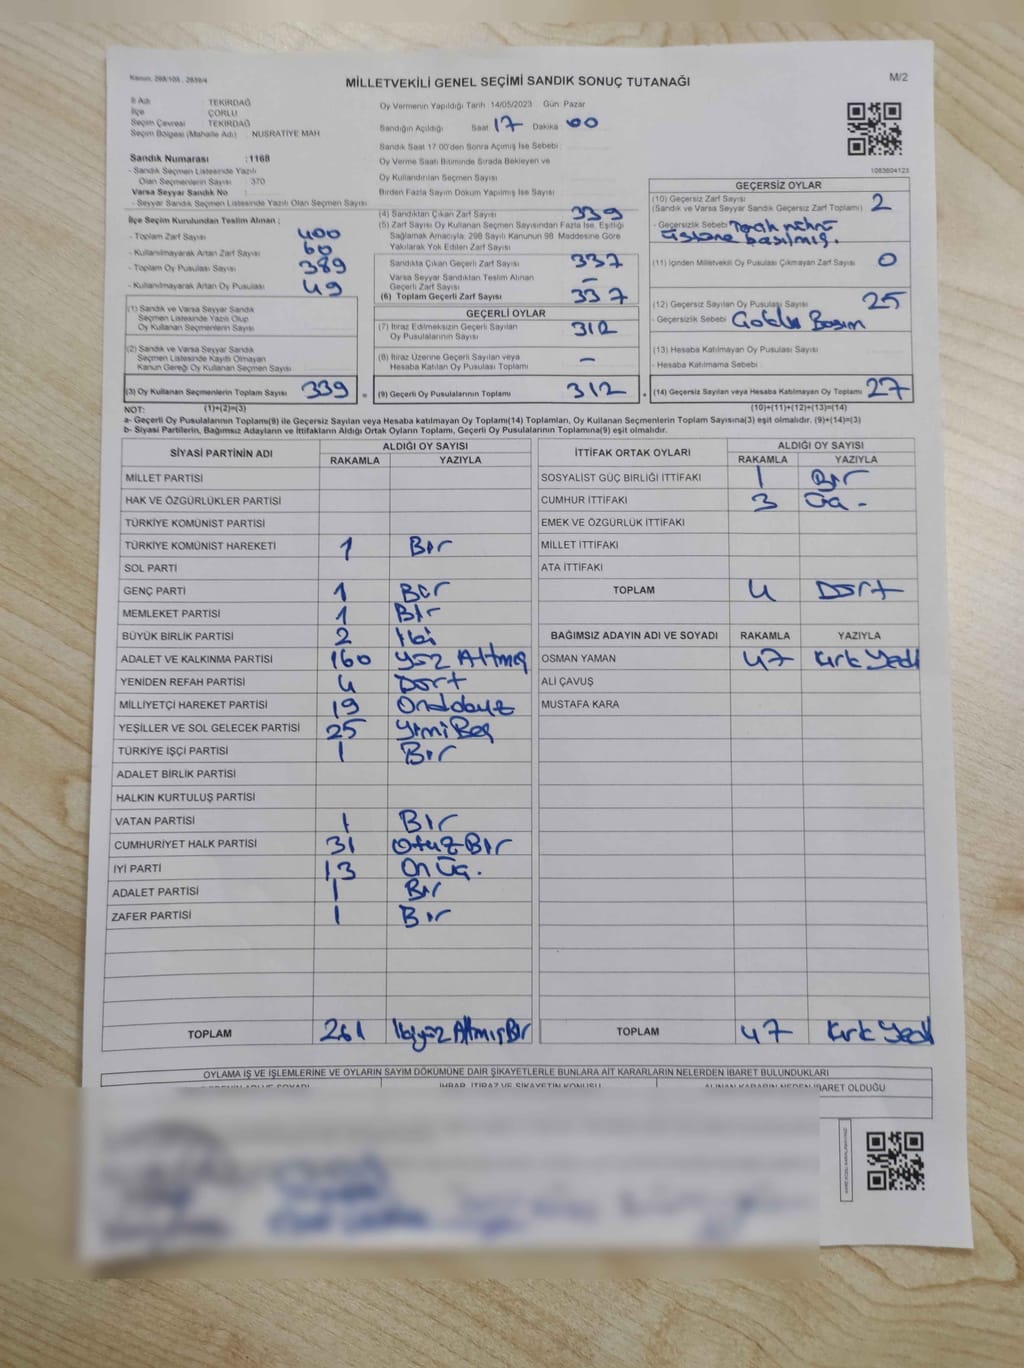 Kanun: 298/105 , 2839/4
MİLLETVEKİLİ GENEL SEÇİMİ SANDIK SONUÇ TUTANAĞI
M/2
İl Adı : TEKİRDAĞ
İlçe : ÇORLU
Seçim Çevresi : TEKİRDAĞ
Seçim Bölgesi (Mahalle Adı) : NUSRATİYE MAH
Sandık Numarası :1168
- Sandık Seçmen Listesinde Yazılı
Olan Seçmenlerin Sayısı : 370
Varsa Seyyar Sandık No :
- Seyyar Sandık Seçmen Listesinde Yazılı Olan Seçmen Sayısı
Oy Vermenin Yapıldığı Tarih :14/05/2023 Gün: Pazar
Sandığın Açıldığı Saat 17 Dakika 00
Sandık Saat 17:00'den Sonra Açılmış İse Sebebi :
Oy Verme Saati Bitiminde Sırada Bekleyen ve
Oy Kullandırılan Seçmen Sayısı
Birden Fazla Sayım Döküm Yapılmış İse Sayısı
1083604123
İlçe Seçim Kurulundan Teslim Alınan ;
- Toplam Zarf Sayısı 400
- Kullanılmayarak Artan Zarf Sayısı 60
- Toplam Oy Pusulası Sayısı 389
- Kullanılmayarak Artan Oy Pusulası 49
(1) Sandık ve Varsa Seyyar Sandık
Seçmen Listesinde Yazılı Olup
Oy Kullanan Seçmenlerin Sayısı
(2) Sandık ve Varsa Seyyar Sandık
Seçmen Listesinde Kayıtlı Olmayan
Kanun Gereği Oy Kullanan Seçmen Sayısı
(3) Oy Kullanan Seçmenlerin Toplam Sayısı 339
(4) Sandıktan Çıkan Zarf Sayısı 339
(5) Zarf Sayısı Oy Kullanan Seçmen Sayısından Fazla İse, Eşitliği
Sağlamak Amacıyla, 298 Sayılı Kanunun 98. Maddesine Göre
Yakılarak Yok Edilen Zarf Sayısı
Sandıkta Çıkan Geçerli Zarf Sayısı 337
Varsa Seyyar Sandıktan Teslim Alınan
Geçerli Zarf Sayısı -
(6) Toplam Geçerli Zarf Sayısı 337
GEÇERLİ OYLAR
(7) İtiraz Edilmeksizin Geçerli Sayılan
Oy Pusulalarının Sayısı 312
(8) İtiraz Üzerine Geçerli Sayılan veya
Hesaba Katılan Oy Pusulası Toplamı -
(9) Geçerli Oy Pusulalarının Toplamı 312
GEÇERSİZ OYLAR
(10) Geçersiz Zarf Sayısı 2
(Sandık ve Varsa Seyyar Sandık Geçersiz Zarf Toplamı)
- Geçersizlik Sebebi
basılmış.
(11) İçinden Milletvekili Oy Pusulası Çıkmayan Zarf Sayısı 0
(12) Geçersiz Sayılan Oy Pusulası Sayısı 25
- Geçersizlik Sebebi
(13) Hesaba Katılmayan Oy Pusulası Sayısı :
- Hesaba Katılmama Sebebi :
(14) Geçersiz Sayılan veya Hesaba Katılmayan Oy Toplamı 27
NOT: (1)+(2)=(3) (10)+(11)+(12)+(13)=(14)
a- Geçerli Oy Pusulalarının Toplamı(9) ile Geçersiz Sayılan veya Hesaba katılmayan Oy Toplamı(14) Toplamları, Oy Kullanan Seçmenlerin Toplam Sayısına(3) eşit olmalıdır. (9)+(14)=(3)
b- Siyasi Partilerin, Bağımsız Adayların ve İttifakların Aldığı Ortak Oyların Toplamı, Geçerli Oy Pusulalarının Toplamına(9) eşit olmalıdır.
SİYASİ PARTİNİN ADI ALDIĞI OY SAYISI
RAKAMLA YAZIYLA
MİLLET PARTİSİ
HAK VE ÖZGÜRLÜKLER PARTİSİ
TÜRKİYE KOMÜNİST PARTİSİ
TÜRKİYE KOMÜNİST HAREKETİ 1 Bir
SOL PARTİ
GENÇ PARTİ 1 Bir
MEMLEKET PARTİSİ 1 Bir
BÜYÜK BİRLİK PARTİSİ 2 İki
ADALET VE KALKINMA PARTİSİ 160 Yüz Altmış
YENİDEN REFAH PARTİSİ 4 Dört
MİLLİYETÇİ HAREKET PARTİSİ 19 Ondokuz
YEŞİLLER VE SOL GELECEK PARTİSİ 25 YirmiBeş
TÜRKİYE İŞÇİ PARTİSİ 1 Bir
ADALET BİRLİK PARTİSİ
HALKIN KURTULUŞ PARTİSİ
VATAN PARTİSİ 1 Bir
CUMHURİYET HALK PARTİSİ 31 Otuz Bir
İYİ PARTİ 13 On Üç.
ADALET PARTİSİ 1 Bir
ZAFER PARTİSİ 1 Bir
TOPLAM 261 İkiyüz Altmış Bir
İTTİFAK ORTAK OYLARI ALDIĞI OY SAYISI
RAKAMLA YAZIYLA
SOSYALİST GÜÇ BİRLİĞİ İTTİFAKI 1 Bir
CUMHUR İTTİFAKI 3 Üç -
EMEK VE ÖZGÜRLÜK İTTİFAKI
MİLLET İTTİFAKI
ATA İTTİFAKI
TOPLAM 4 Dört
BAĞIMSIZ ADAYIN ADI VE SOYADI RAKAMLA YAZIYLA
OSMAN YAMAN 47 Kırk Yedi
ALİ ÇAVUŞ
MUSTAFA KARA
TOPLAM 47 Kırk Yedi
OYLAMA İŞ VE İŞLEMLERİNE VE OYLARIN SAYIM DÖKÜMÜNE DAİR ŞİKAYETLERLE BUNLARA AİT KARARLARIN NELERDEN İBARET BULUNDUKLARI
İHBAR, İTİRAZ VE ŞİKAYETİN KONUSU
ALINAN KARARIN NEDEN İBARET OLDUĞU